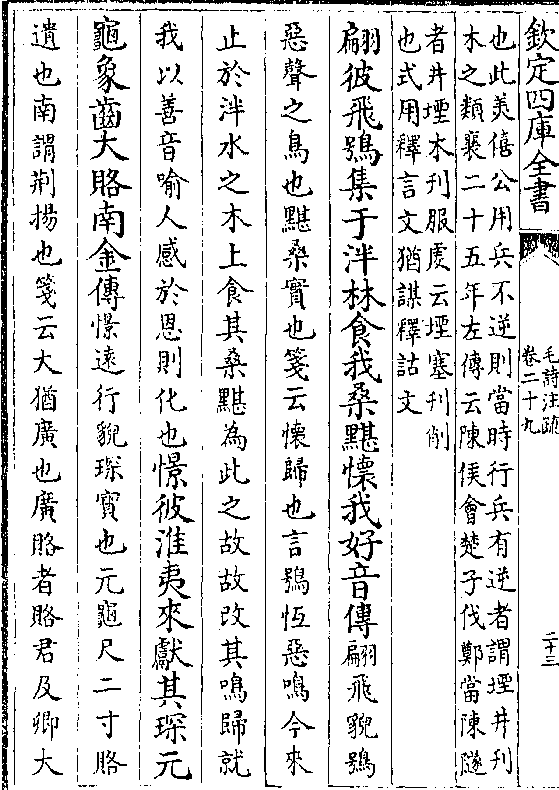 欽定四庫全書
毛詩注疏
卷二十九
二十三
也此美僖公用兵不逆則當時行兵有逆者謂堙井刊
木之類襄二十五年左傳云陳侯會楚子伐鄭當陳隧
者井堙木刊服虔云堙塞刊削
也式用釋言文猶謀釋詁文
翩彼飛鴞集于泮林食我桑黮懷我好音傳翩飛貌鴞
惡聲之鳥也黮桑實也箋云懷歸也言鴞恆惡鳴今來
止於泮水之木上食其桑黮為此之故故改其鳴歸就
我以善音喻人感於恩則化也憬彼淮夷來獻其琛元
龜象齒大賂南金傳憬遠行貌琛寳也元龜尺二寸賂
遺也南謂荆揚也箋云大猶廣也廣賂者賂君及卿大